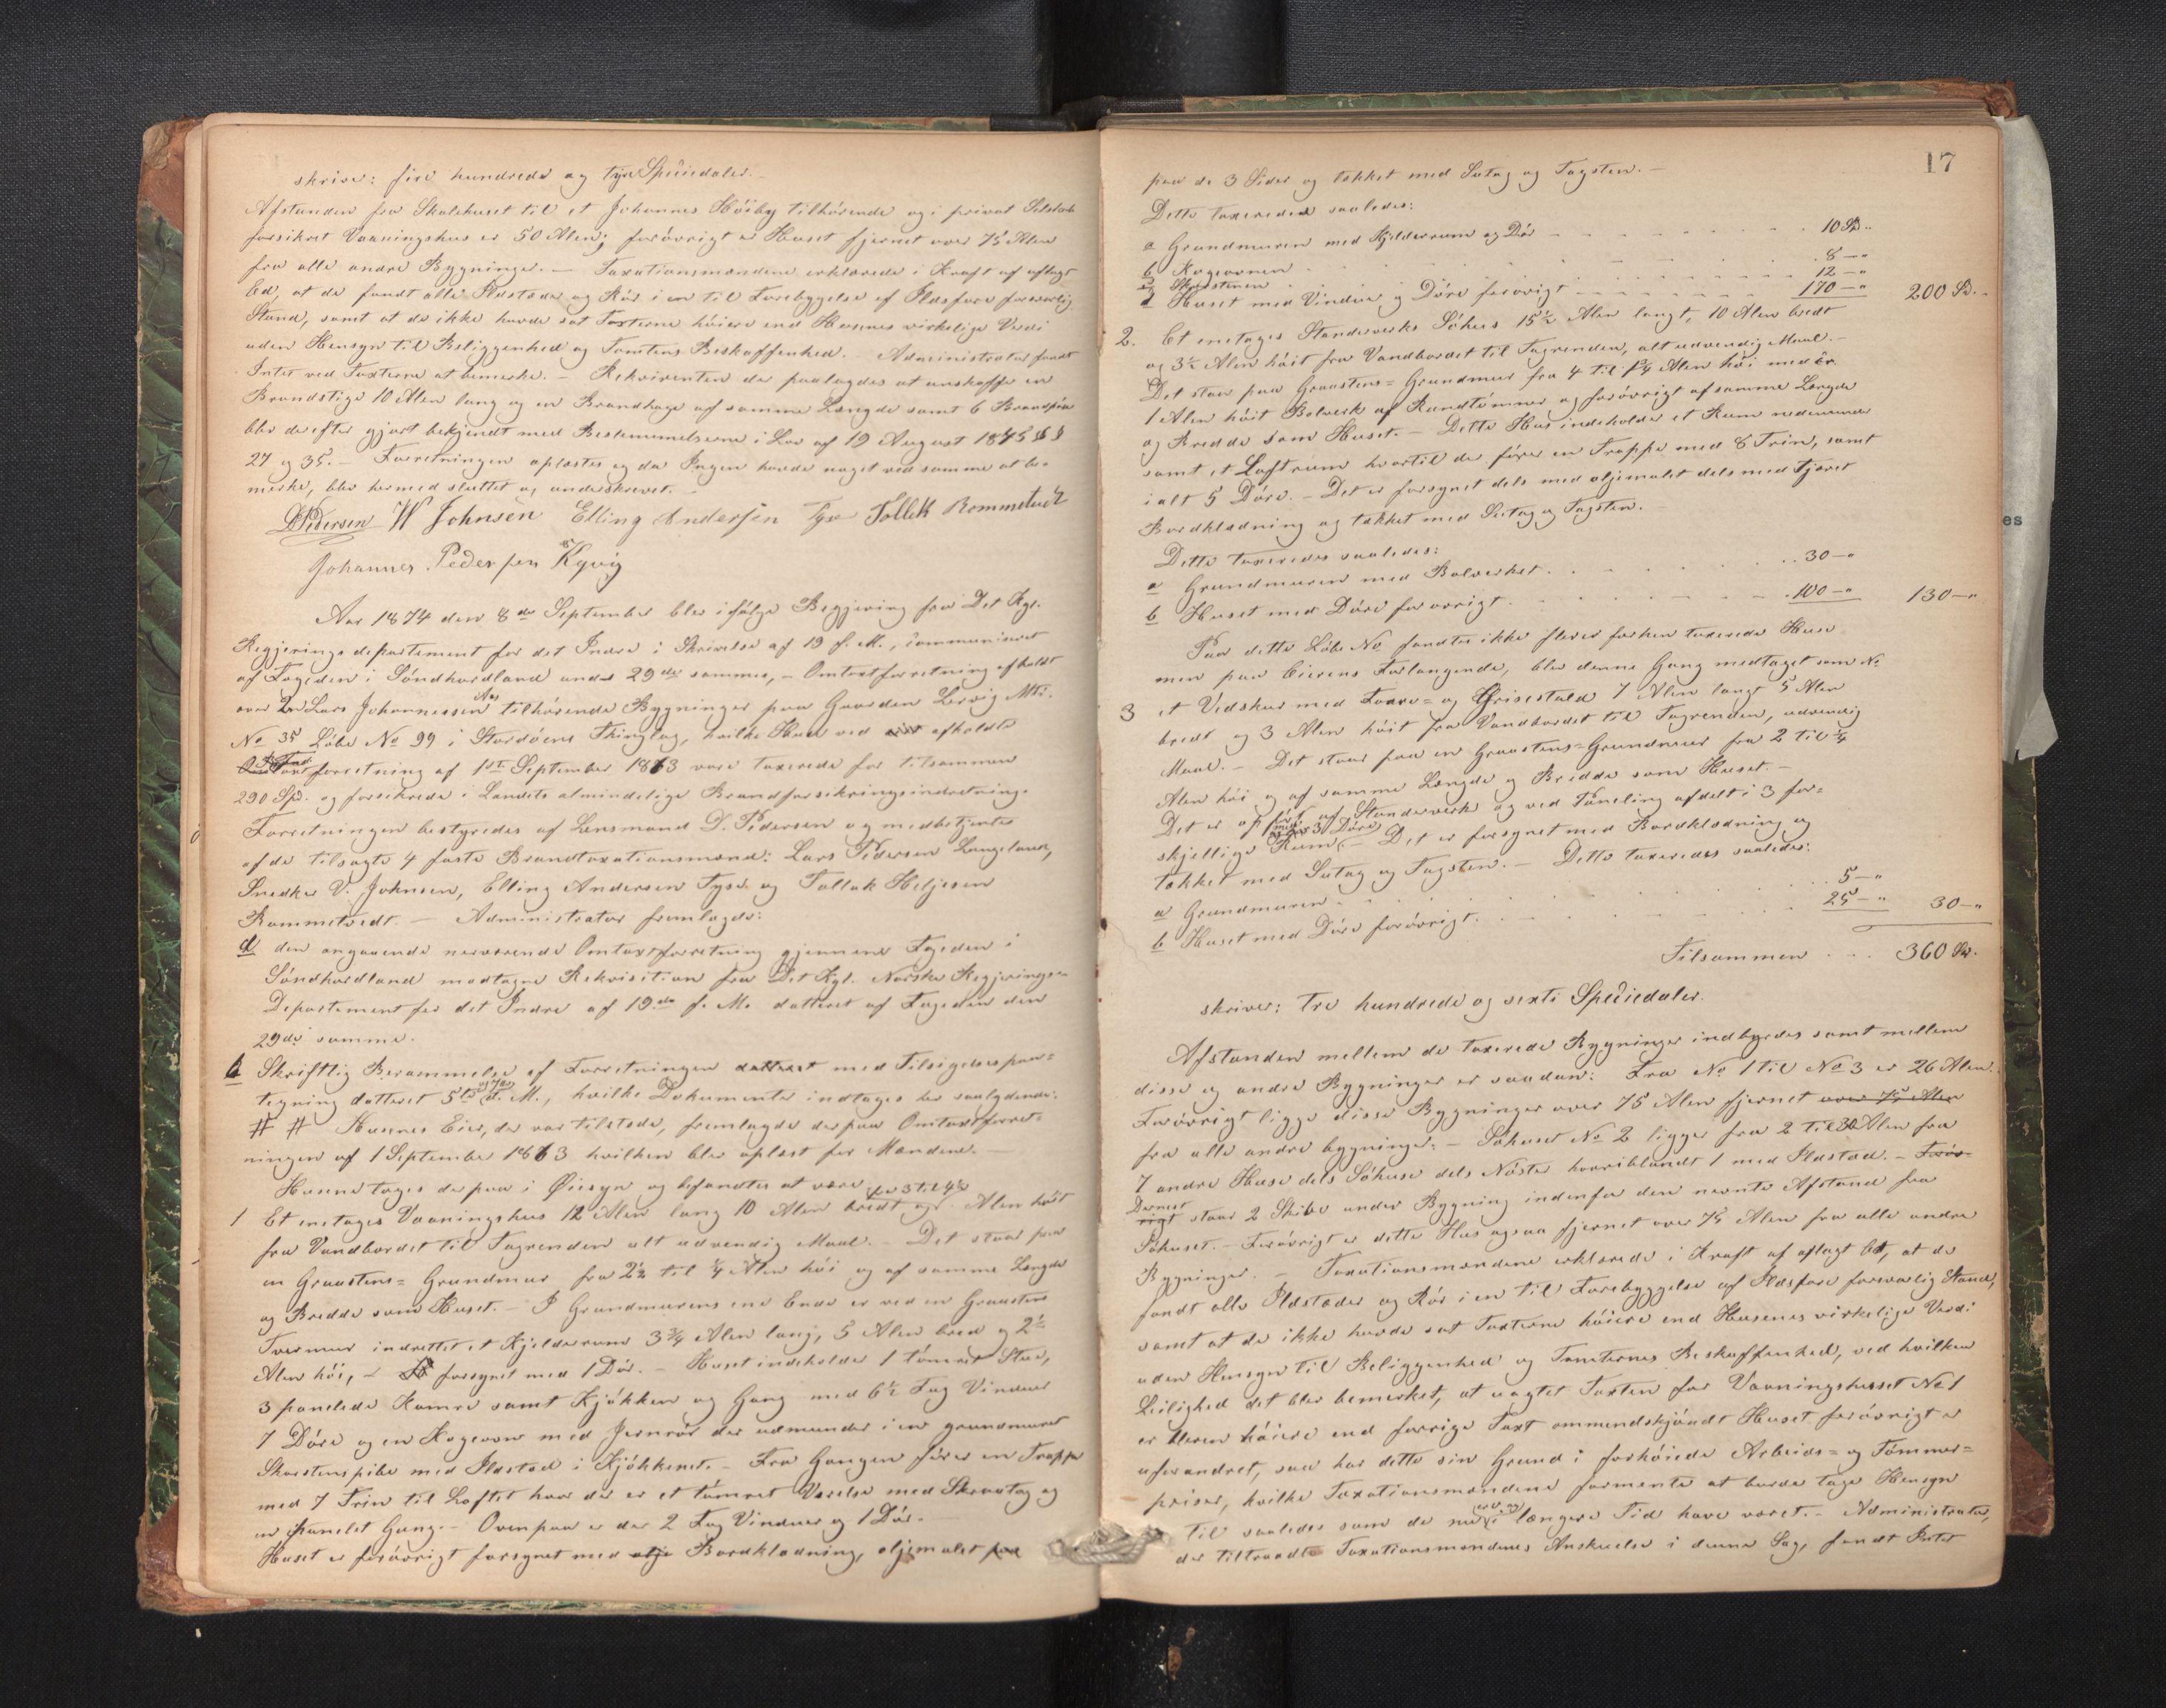 skriver: fire hundrede og tyve Speciedaler.
Afstanden fra Skolehuset til et Johannes Höiby tilhörende og i privat Selskab
forsikret Vaaningshus er 50 Alen; forövrigt er Huset fjernet over 75 Alen
fra alle andre Bygninger. – Taxationsmændene erklærede i Kraft af aflagt
Ed, at de fandt alle Ildsteder og Rör i en til Forebyggelse af Ildsfare forsvarlig
Stand, samt at de ikke havde sat Taxterne höiere end Husenes virkelige Værdi
uden Hensyn til Beliggenhed og Tomtens Beskaffenhed. – Administrator fandt
Intet ved Taxterne at bemærke. – Rekvirenten der paalagdes at anskaffe en
Brandstige 10 Alen lang og en Brandhage af samme Længde samt 6 Brandspan
blev derefter gjort bekjendt med Bestemmelserne i Lov af 19 August 1845 §§
27 og 35. – Forretningen oplæstes og da Ingen havde noget ved samme at be-
mærke, blev hermed sluttet og underskrevet.
D Pedersen W Johnsen Elling Andersen Tyse Tollek Rommetvedt
Johannes Pedersen Kyvig
Aar 1874 den 8de September blev ifölge Begjæring fra Det Kgl.
Regjerings departement for det Indre i Skrivelse af 19 f. M., communiceret
af Fogden i Söndhordland under 29de sammes, – Omtaxtforretning afholdt
over Lars Johannessen tilhörende Bygninger paa Gaarden Lervig Mtr.
No 35 Löbe No 99 i Stordöens Thinglag, hvilke Huse ved afholdte
forretning af 1ste September 1863 vare taxerede for tilsammen
290 Spd. og forsikrede i Landets almindelige Brandforsikringsindretning.
Forretningen bestyredes af Lensmand D. Pedersen og medbetjentes
af de tilsagte 4 faste Brandtaxationsmænd: Lars Pedersen Langeland,
Snedker V. Johnsen, Elling Andersen Tyse og Tollak Heljesen
Rommetvedt. – Administrator fremlagde:
a den angaaende nærværende Omtaxtforretning gjennem Fogden i
Söndhordland modtagne Rekvisition fra Det Kgl. Norske Regjerings-
Departement for det Indre af 19de f. M. datteret af Fogden den
29de samme.
b Skriftlig Berammelse af Forretningen datteret med Tilsigelsespaa-
tegning datteret 5te d. M., hvilke Dokumenter indtages her saalydende:
# # Husenes Eier, der var tilstede, fremlagde derpaa Omtaxtforret-
ningen af 1 September 1863 hvilken blev oplæst for Mændene. –
Husene toges derpaa i Öiesyn og befandtes at være
fra 3 til 4½
1 Et enetages Vaaningshus 12 Alen lang 10 Alen bredt og Alen höit
fra Vandbordet til Tagrenden alt udvendig Maal. – Det staar paa
en Graastens= Grundmur fra 2½ til ¼ Alen höi og af samme Længde
og Bredde som Huset. – I Grundmurens ene Ende er ved en Graastens
Tvermur indrettet et Kjelderrum 3¾ Alen lang, 5 Alen bred og 2½
Alen höi, forsynet med 1 Dör. – Huset indeholder 1 tömret Stue,
3 panelede Kamre samt Kjökken og Gang med 6½ Fag Vinduer
7 Döre og en Kogeovn med Jernrör der udmunder i en grundmuret
Skorstenspibe med Ildsted i Kjökkenet. – Fra Gangen förer en Trappe
med 7 Trin til Loftet hvor der er et tömret Værelse med Skraatag og
en panelet Gang. – Ovenpaa er der 2 Fag Vinduer og 1 Dör. –
Huset er forövrigt forsynet med Bordklædning, oljemalet paa
17
paa de 3 Sider og tækket med Sutag og Tagsten. –
Dette taxeredes saaledes:
a Grundmuren med Kjelderrum og Dör 10 Sp. "
b Kogeovnen 8 – "
c Skorstenen 12 – "
d Huset med Vinduer og Döre forövrigt 170 – " 200 Sp.
2. Et enetages Standerværks Söhus 15½ Alen langt, 10 Alen bredt
og 3½ Alen höit fra Vandbordet til Tagrenden, alt udvendig Maal. –
Det staar paa Graastens= Grundmur fra 4 til ¼ Alen höi med en
1 Alen höit Bolverk af Rundtömmer og forövrigt af samme Længde
og Bredde som Huset. – Dette Hus indeholder et Rum nedenunder
samt et Loftrum hvortil der förer en Trappe med 8 Trin, samt
ialt 5 Döre. – Det er forsynet dels med oljemalet dels med tjæret
Bordklædning og tækket med Sutag og Tagsten. –
Dette taxeredes saaledes:
a Grundmuren med Bolverket 30 – "
b Huset med Döre forövrigt 100 – " 130 – "
Paa dette Löbe No fandtes ikke flere forhen taxerede Huse
men paa Eierens Forlangende, blev denne Gang medtaget som No
3 et Vedskur med Faare= og Grisestald 7 Alen langt 5 Alen
bredt og 3 Alen höit fra Vandbordet til Tagrenden, udvendig
Maal. – Det staar paa en Graastens= Grundmur fra 2 til ¼
Alen höi og af samme Længde og Bredde som Huset. –
Det er opfört af Stenderværk og ved Paneling afdelt i 3 for-
med 3 Döre
skjellige Rum – Det er forsynet med Bordklædning og
tækket med Sutag og Tagsten. – Dette taxeredes saaledes:
a Grundmuren 5 – "
b Huset med Döre forövrigt 25 – " 30 – "
Tilsammen 360 Sp.
skriver: Tre hundrede og sexti Speciedaler.
Afstanden mellem de taxerede Bygninger indbyrdes samt mellem
disse og andre Bygninger er saadan: Fra No 1 til No 3 er 26 Alen.
Forövrigt ligge disse Bygninger over 75 Alen fjernet over 75 Alen
fra alle andre bygninger. – Söhuset No 2 ligger fra 2 til 30 Alen fra
7 andre Huse dels Söhuse dels Nöster hvoriblandt 1 med Ildsted. – Foröv-
Dernæst
rigt staar 2 Skibe under Bygning indenfor den nævnte Afstand fra
Söhuset. – Forövrigt er dette Hus ogsaa fjernet over 75 Alen fra alle andre
Bygninger. – Taxationsmændene erklærede i Kraft af aflagt Ed, at de
fandt alle Ildsteder og Rör i en til Forebyggelse af Ildsfare forsvarlig Stand,
samt at de ikke havde sat Taxterne höiere end Husenes virkelige Værdi
uden Hensyn til Beliggenhed og Tomternes Beskaffenhed, ved hvilken
Leilighed det blev bemærket, at uagtet Taxten for Vaaningshuset No 1
er bleven höiere end forrige Taxt ommendskjöndt Huset forövrigt er
uforandret, saa har dette sin Grund i forhöiede Arbeids= og Tömmer=
priser, hvilke Taxationsmændene formente at burde tage Hensyn
til saaledes som de nu er og i længere Tid have været. – Administrator,
der tiltraadte Taxationsmændenes Anskuelse i denne Sag, fandt Intet
es